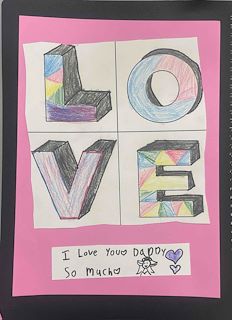 L O
V E
I Love You Daddy
So Much